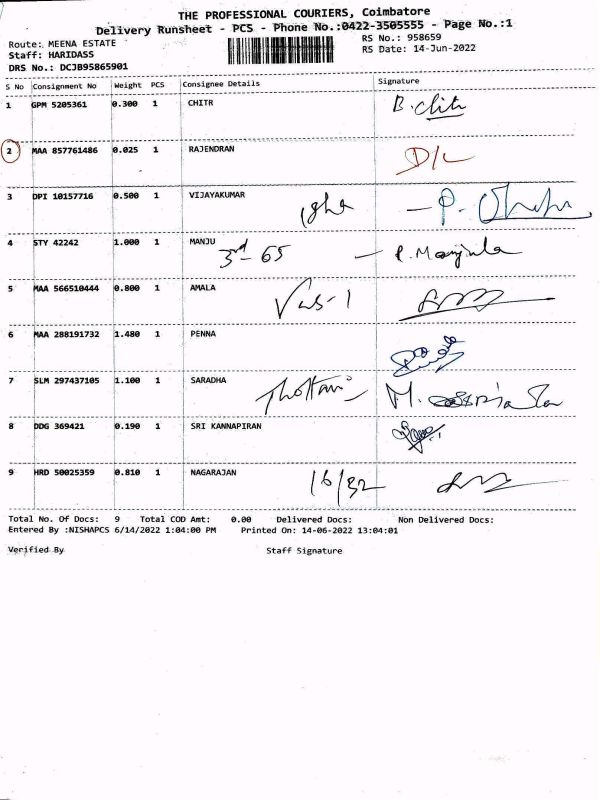 THE PROFESSIONAL COURIERS, Coimbatore
Delivery Runsheet - PCS - Phone No.:0422-3505555 - Page No.:1
Route: MEENA ESTATE RS No.: 958659
Staff: HARIDASS RS Date: 14-Jun-2022
DRS No.: DCJB95865901
S No Consignment No Weight PCS Consignee Details Signature
1 GPM 5205361 0.300 1 CHITR B. Chitr
2 MAA 857761486 0.025 1 RAJENDRAN D/L
3 DPI 10157716 0.500 1 VIJAYAKUMAR
4 STY 42242 1.000 1 MANJU 3rd - 65 - P. Manjula
5 MAA 566510444 0.800 1 AMALA
6 MAA 288191732 1.480 1 PENNA
7 SLM 297437105 1.100 1 SARADHA
8 DDG 369421 0.190 1 SRI KANNAPIRAN
9 HRD 50025359 0.810 1 NAGARAJAN 16/32
Total No. Of Docs: 9 Total COD Amt: 0.00 Delivered Docs: Non Delivered Docs:
Entered By :NISHAPCS 6/14/2022 1:04:00 PM Printed On: 14-06-2022 13:04:01
Verified By Staff Signature